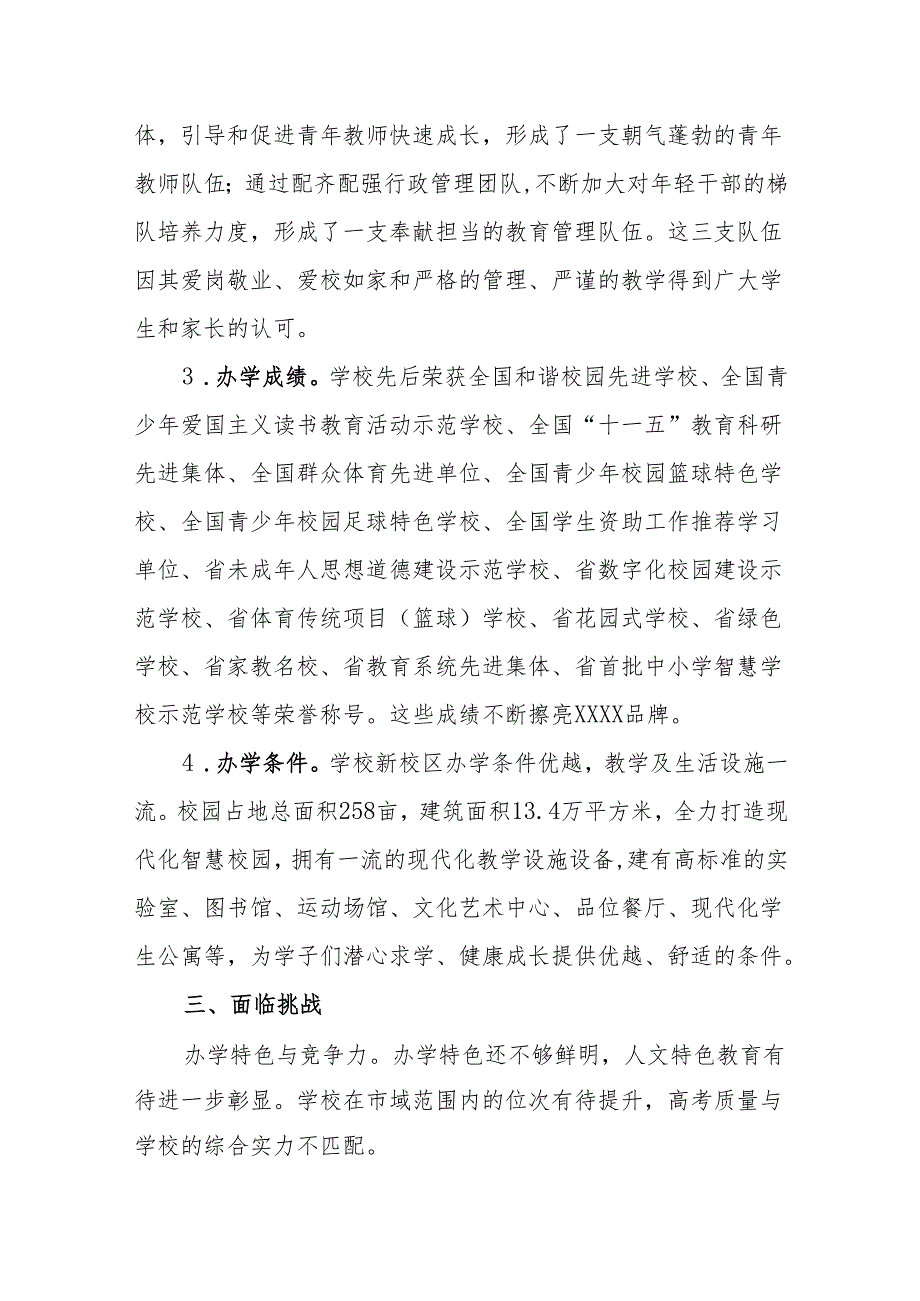 体，引导和促进青年教师快速成长，形成了一支朝气蓬勃的青年
教师队伍；通过配齐配强行政管理团队,不断加大对年轻干部的梯
队培养力度，形成了一支奉献担当的教育管理队伍。这三支队伍
因其爱岗敬业、爱校如家和严格的管理、严谨的教学得到广大学
生和家长的认可。
3.办学成绩。学校先后荣获全国和谐校园先进学校、全国青
少年爱国主义读书教育活动示范学校、全国“十一五”教育科研
先进集体、全国群众体育先进单位、全国青少年校园篮球特色学
校、全国青少年校园足球特色学校、全国学生资助工作推荐学习
单位、省未成年人思想道德建设示范学校、省数字化校园建设示
范学校、省体育传统项目（篮球）学校、省花园式学校、省绿色
学校、省家教名校、省教育系统先进集体、省首批中小学智慧学
校示范学校等荣誉称号。这些成绩不断擦亮XXXX品牌。
4.办学条件。学校新校区办学条件优越，教学及生活设施一
流。校园占地总面积258亩，建筑面积13.4万平方米，全力打造现
代化智慧校园，拥有一流的现代化教学设施设备,建有高标准的实
验室、图书馆、运动场馆、文化艺术中心、品位餐厅、现代化学
生公寓等，为学子们潜心求学、健康成长提供优越、舒适的条件。
三、面临挑战
办学特色与竞争力。办学特色还不够鲜明，人文特色教育有
待进一步彰显。学校在市域范围内的位次有待提升，高考质量与
学校的综合实力不匹配。